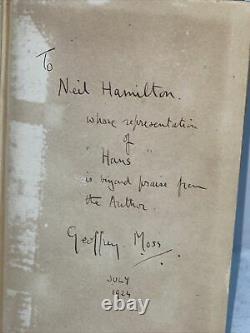 To
Neil Hamilton.
whose representation
of
"Hans"
is beyond praise from
the Author.
Geoffrey Moss
JULY
1924